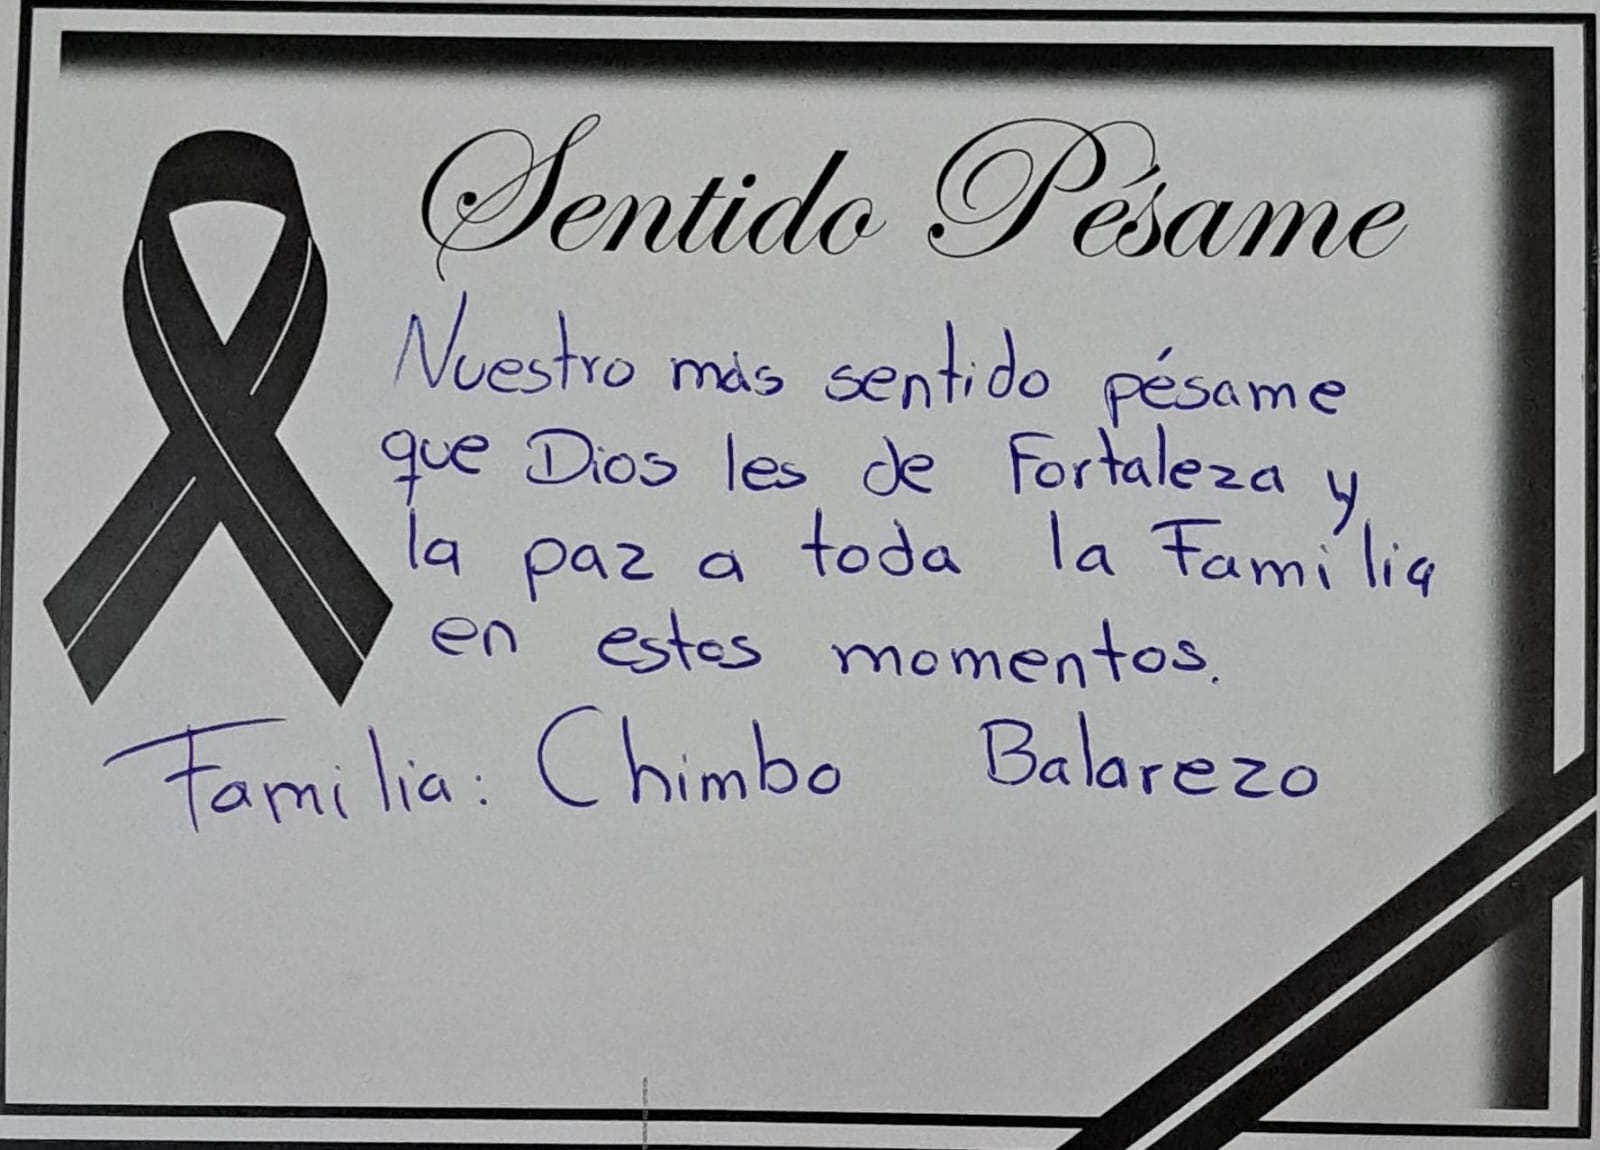 Sentido Pésame
Nuestro más sentido pésame
que Dios les de Fortaleza y
la paz a toda la Familia
en estos momentos.
Familia: Chimbo Balarezo